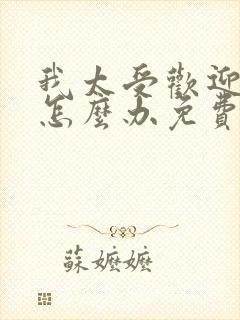 我太受歡迎
怎麼办免費
蘇嬤嬤